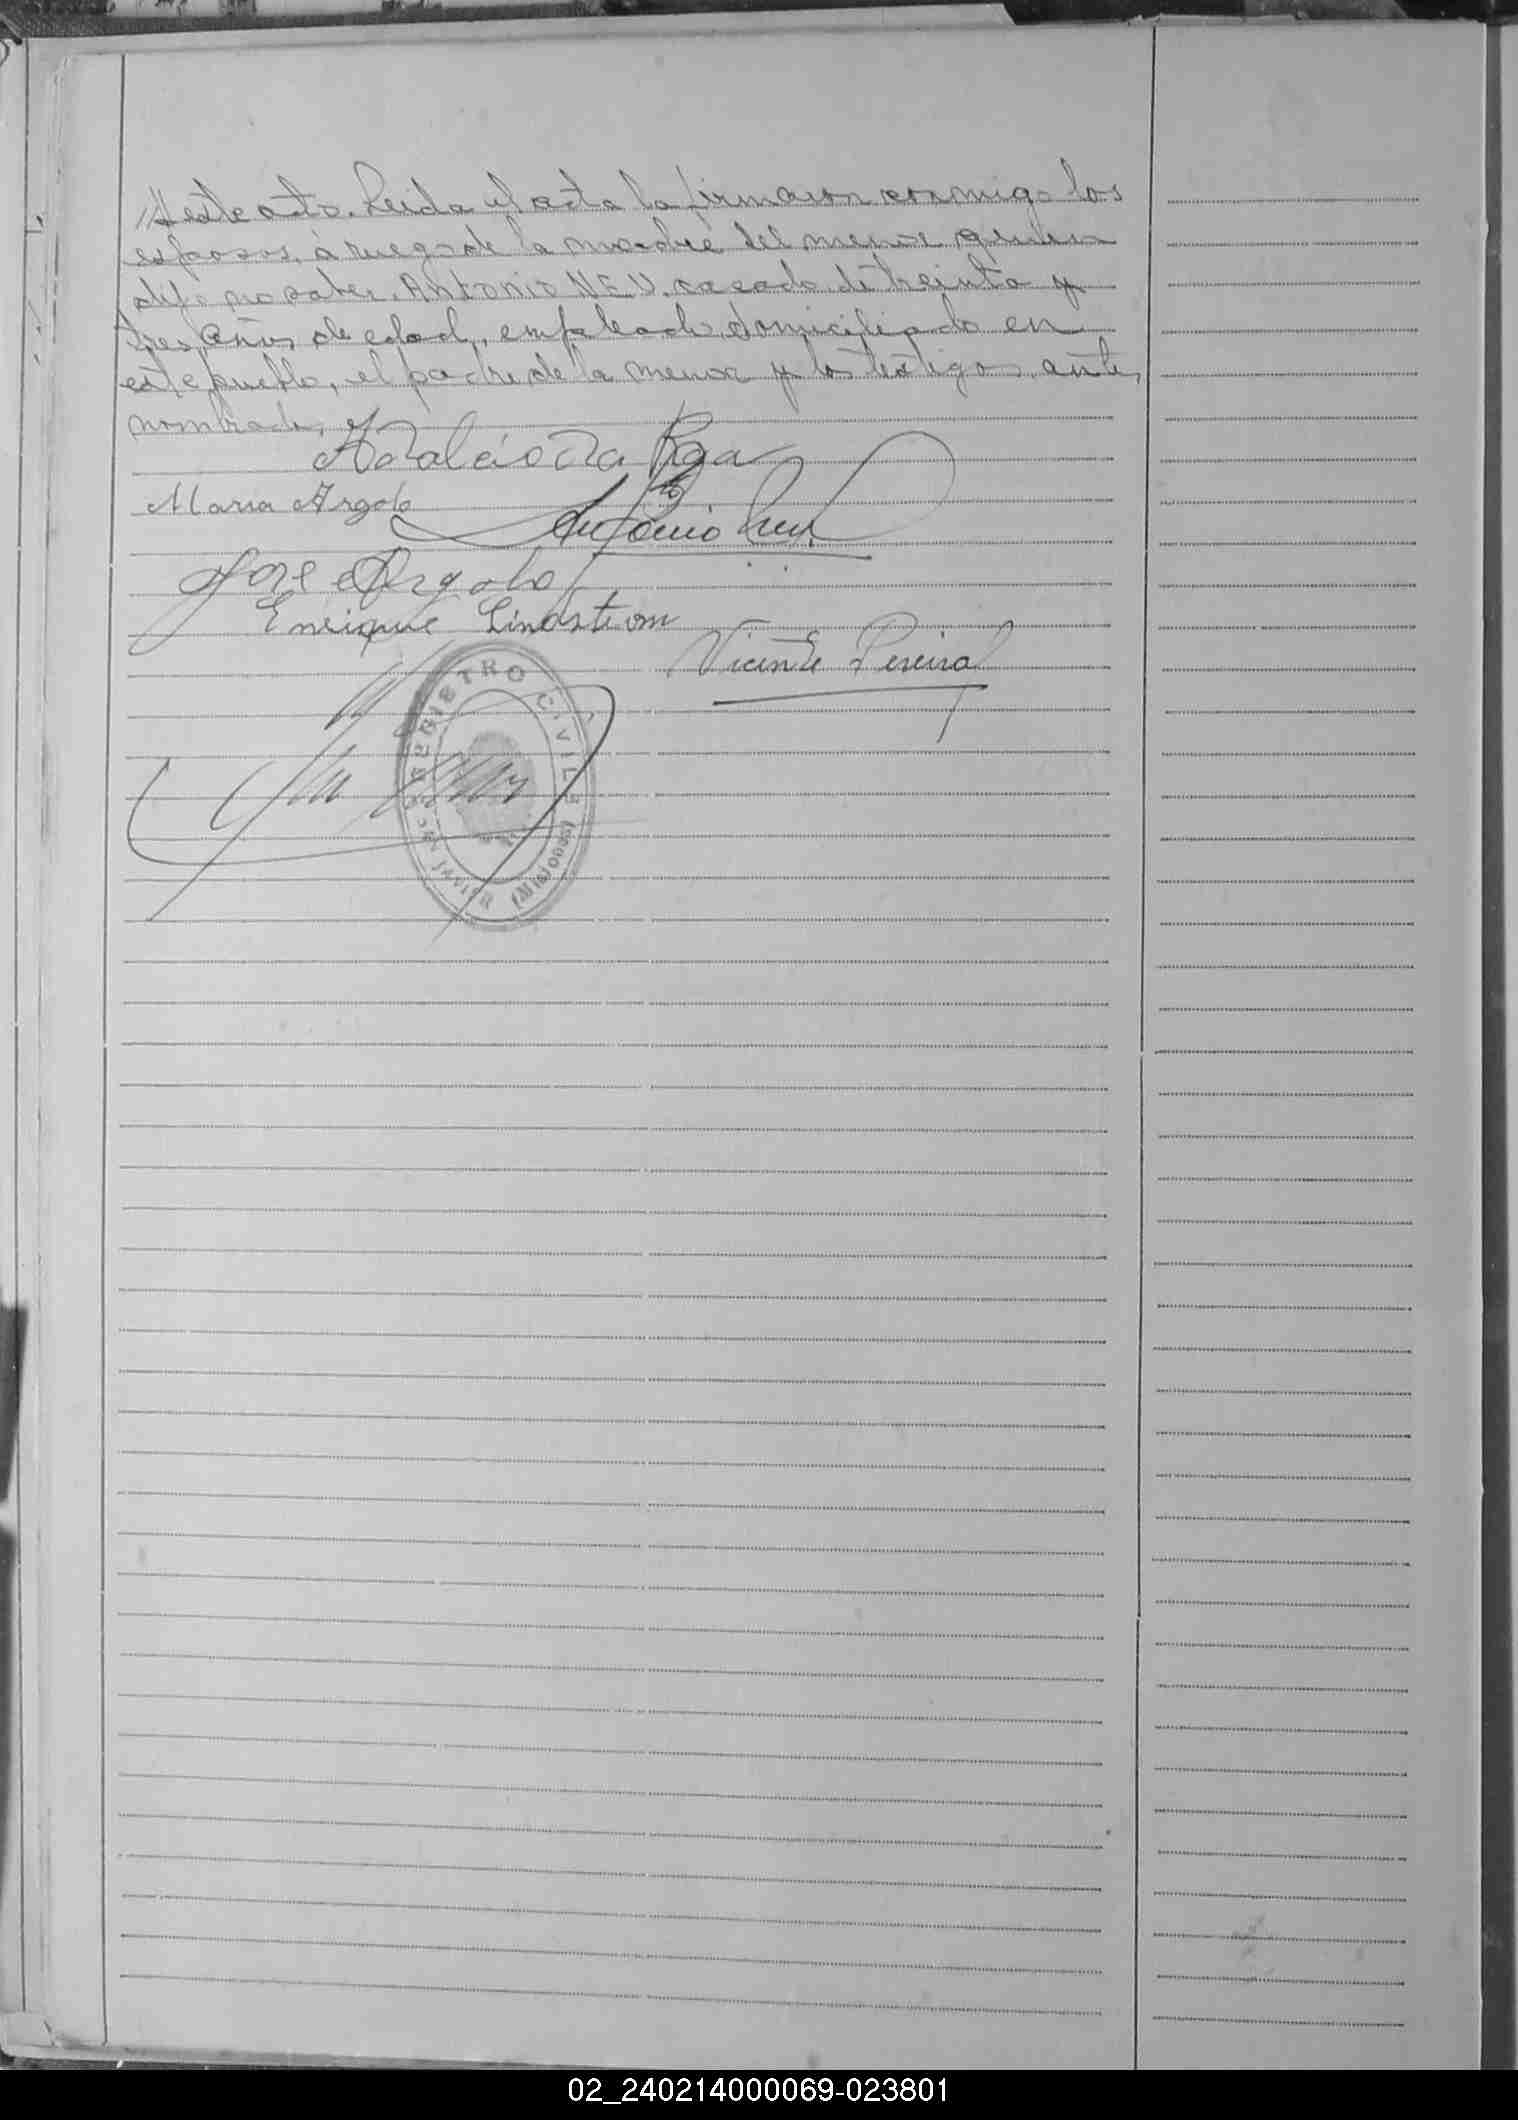 este acto. Leida el acta la firmaron conmigo los
esposos, á ruego de la madre del menor quien
dijo no saber, Antonio NEU, casado, de treinta y
tres años de edad, empleado, domiciliado en
este pueblo, el padre de la menor y los testigos ante
nombrado,
Adalcio Da Rga
Maria Argolo
Antonio Neu
Jose Argolo
Enrique Lindstrom
Vicente Pereira
REGISTRO CIVIL
SAN JAVIER (Misiones)
02_240214000069-023801